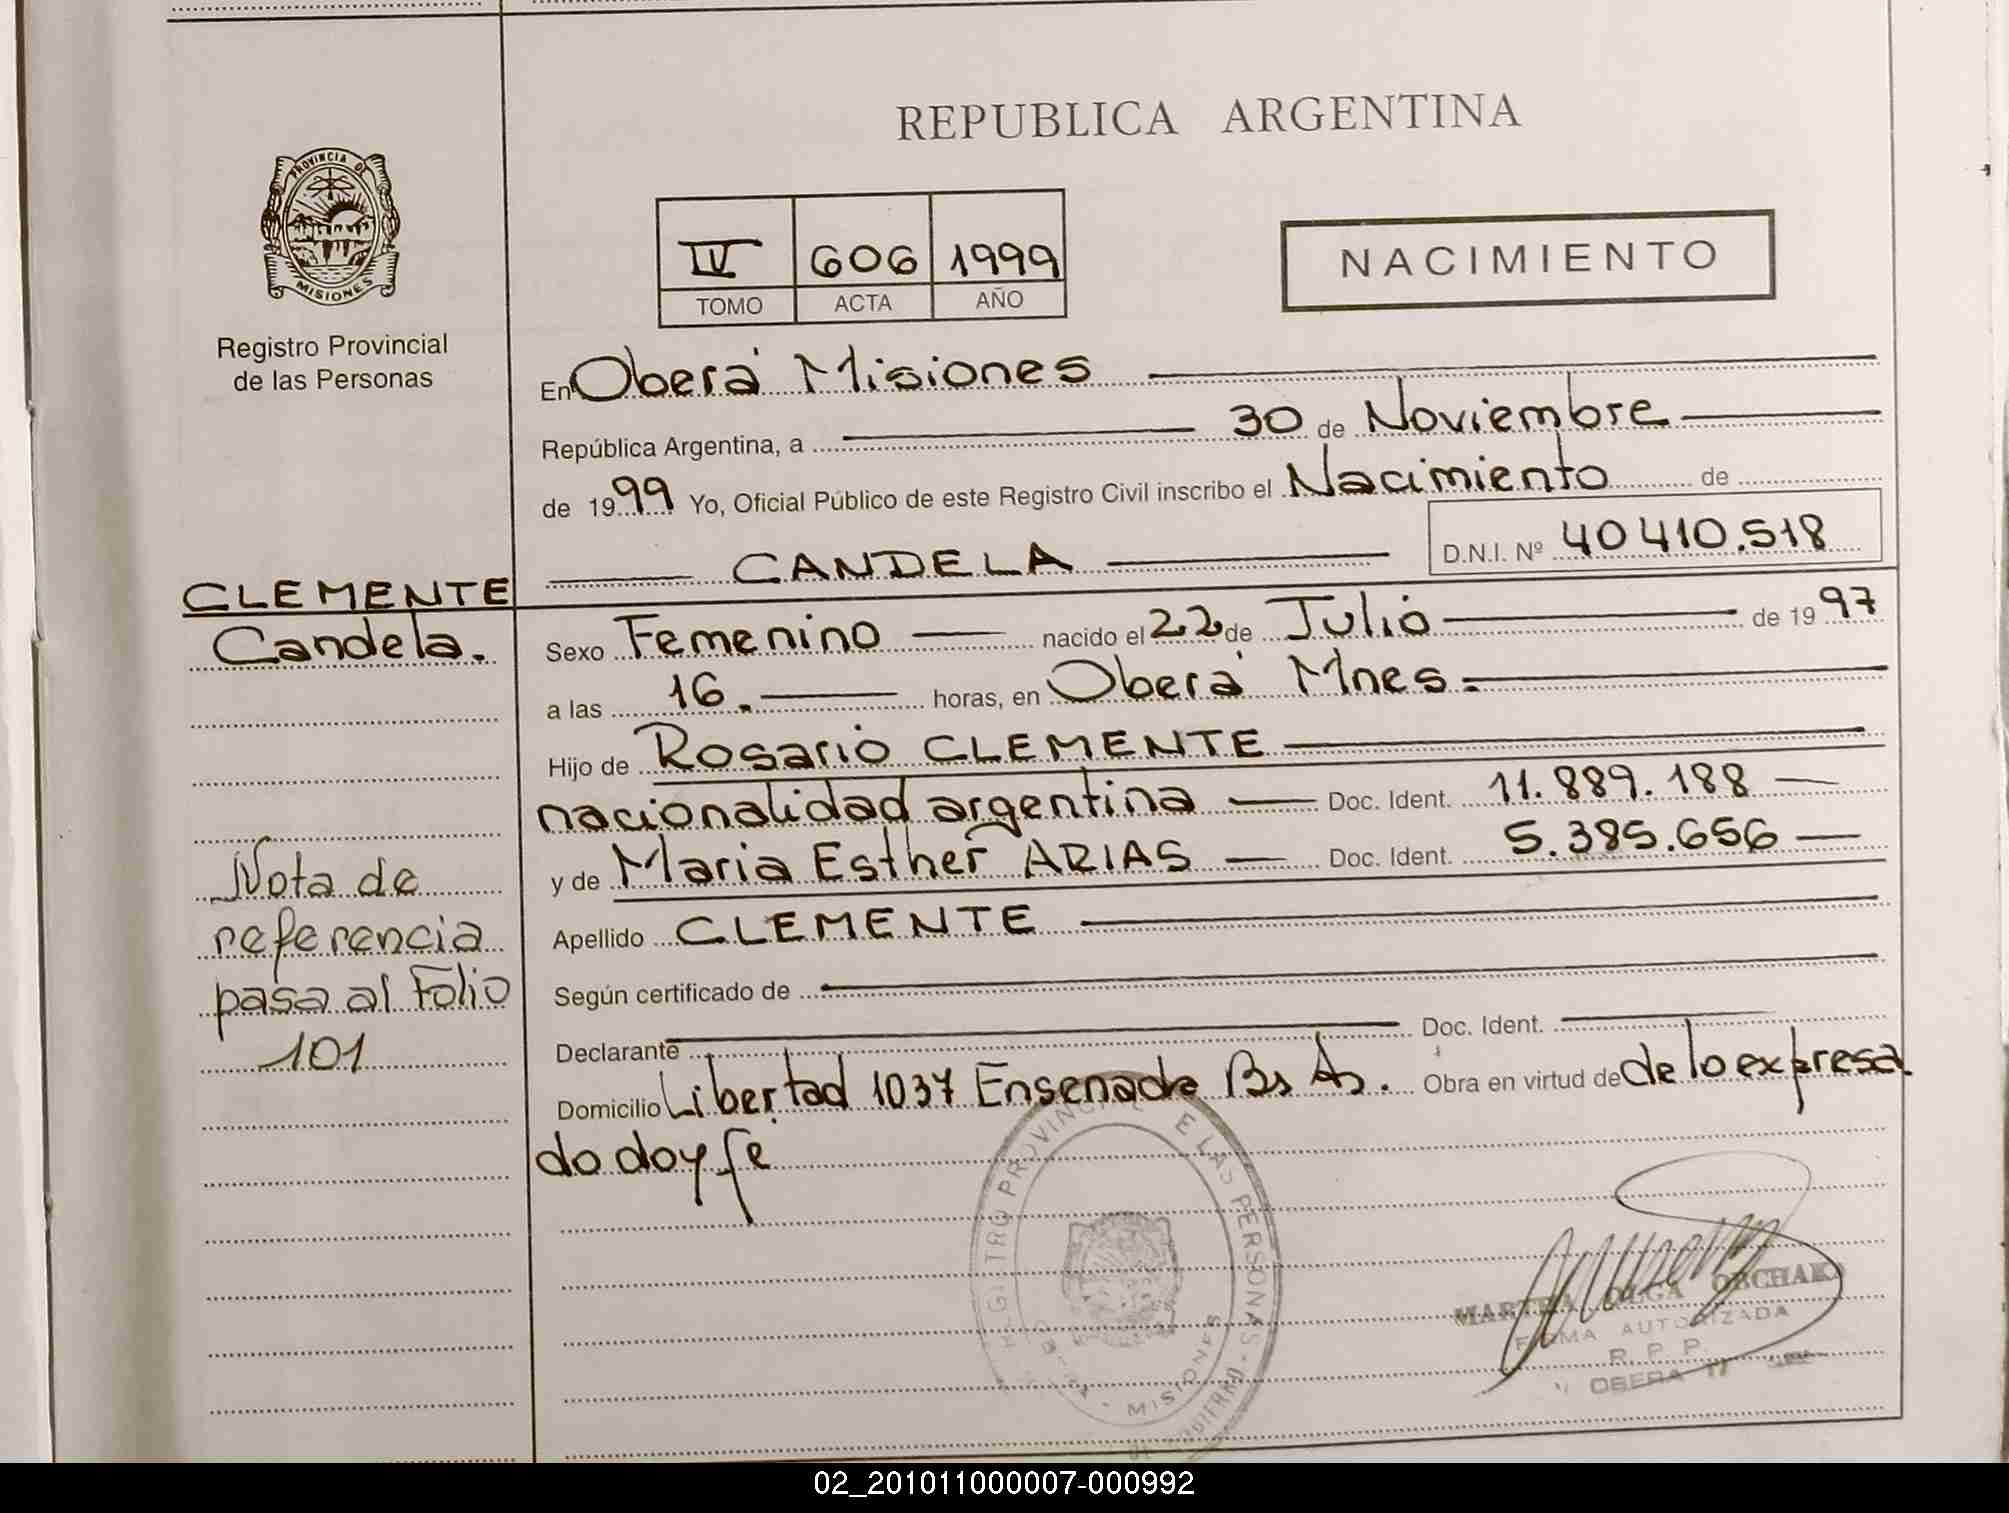 REPUBLICA ARGENTINA
PROVINCIA DE
MISIONES
IV 606 1999
TOMO ACTA AÑO
NACIMIENTO
Registro Provincial
de las Personas
En Oberá Misiones
República Argentina, a 30 de Noviembre
de 1999 Yo, Oficial Público de este Registro Civil inscribo el Nacimiento de
CANDELA D.N.I. Nº 40 410.518
CLEMENTE
Candela.
Sexo Femenino nacido el 22 de Julio de 1997
a las 16. horas, en Oberá Mnes.
Hijo de Rosario CLEMENTE
nacionalidad argentina Doc. Ident. 11.889.188
y de Maria Esther ARIAS Doc. Ident. 5.385.656
Apellido CLEMENTE
Según certificado de
Declarante Doc. Ident.
Domicilio Libertad 1037 Ensenada Bs As. Obra en virtud de de lo expresa
do doy fe
Nota de
referencia
pasa al Folio
101
PROVINCIAL E LAS PERSONAS
MISIONES
MARTHA OLGA OBCHAKO
FIRMA AUTORIZADA
R. P. P.
OBERA
02_201011000007-000992